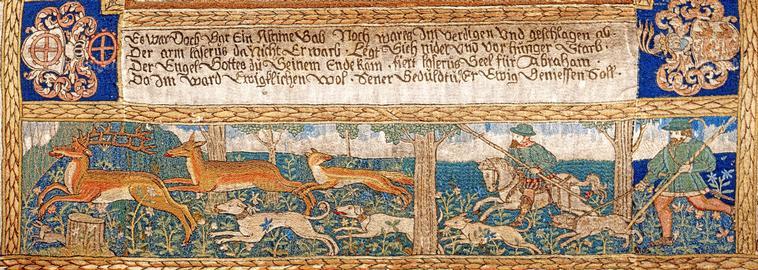 Es War Doch Gar Ein Kleine Gab Noch wards Im verzigen Und geschlagen ab.
Der arm laserus da Nicht Er warb. Legt Sich nider Und vor hunger Starb.
Der Engel Gottes zu Seinem Ende kam. fiert laserus Seel für Abraham
Da Im Ward Ewigklichen wol. Sener Gedulden, Er Ewig Geniessen Soll.